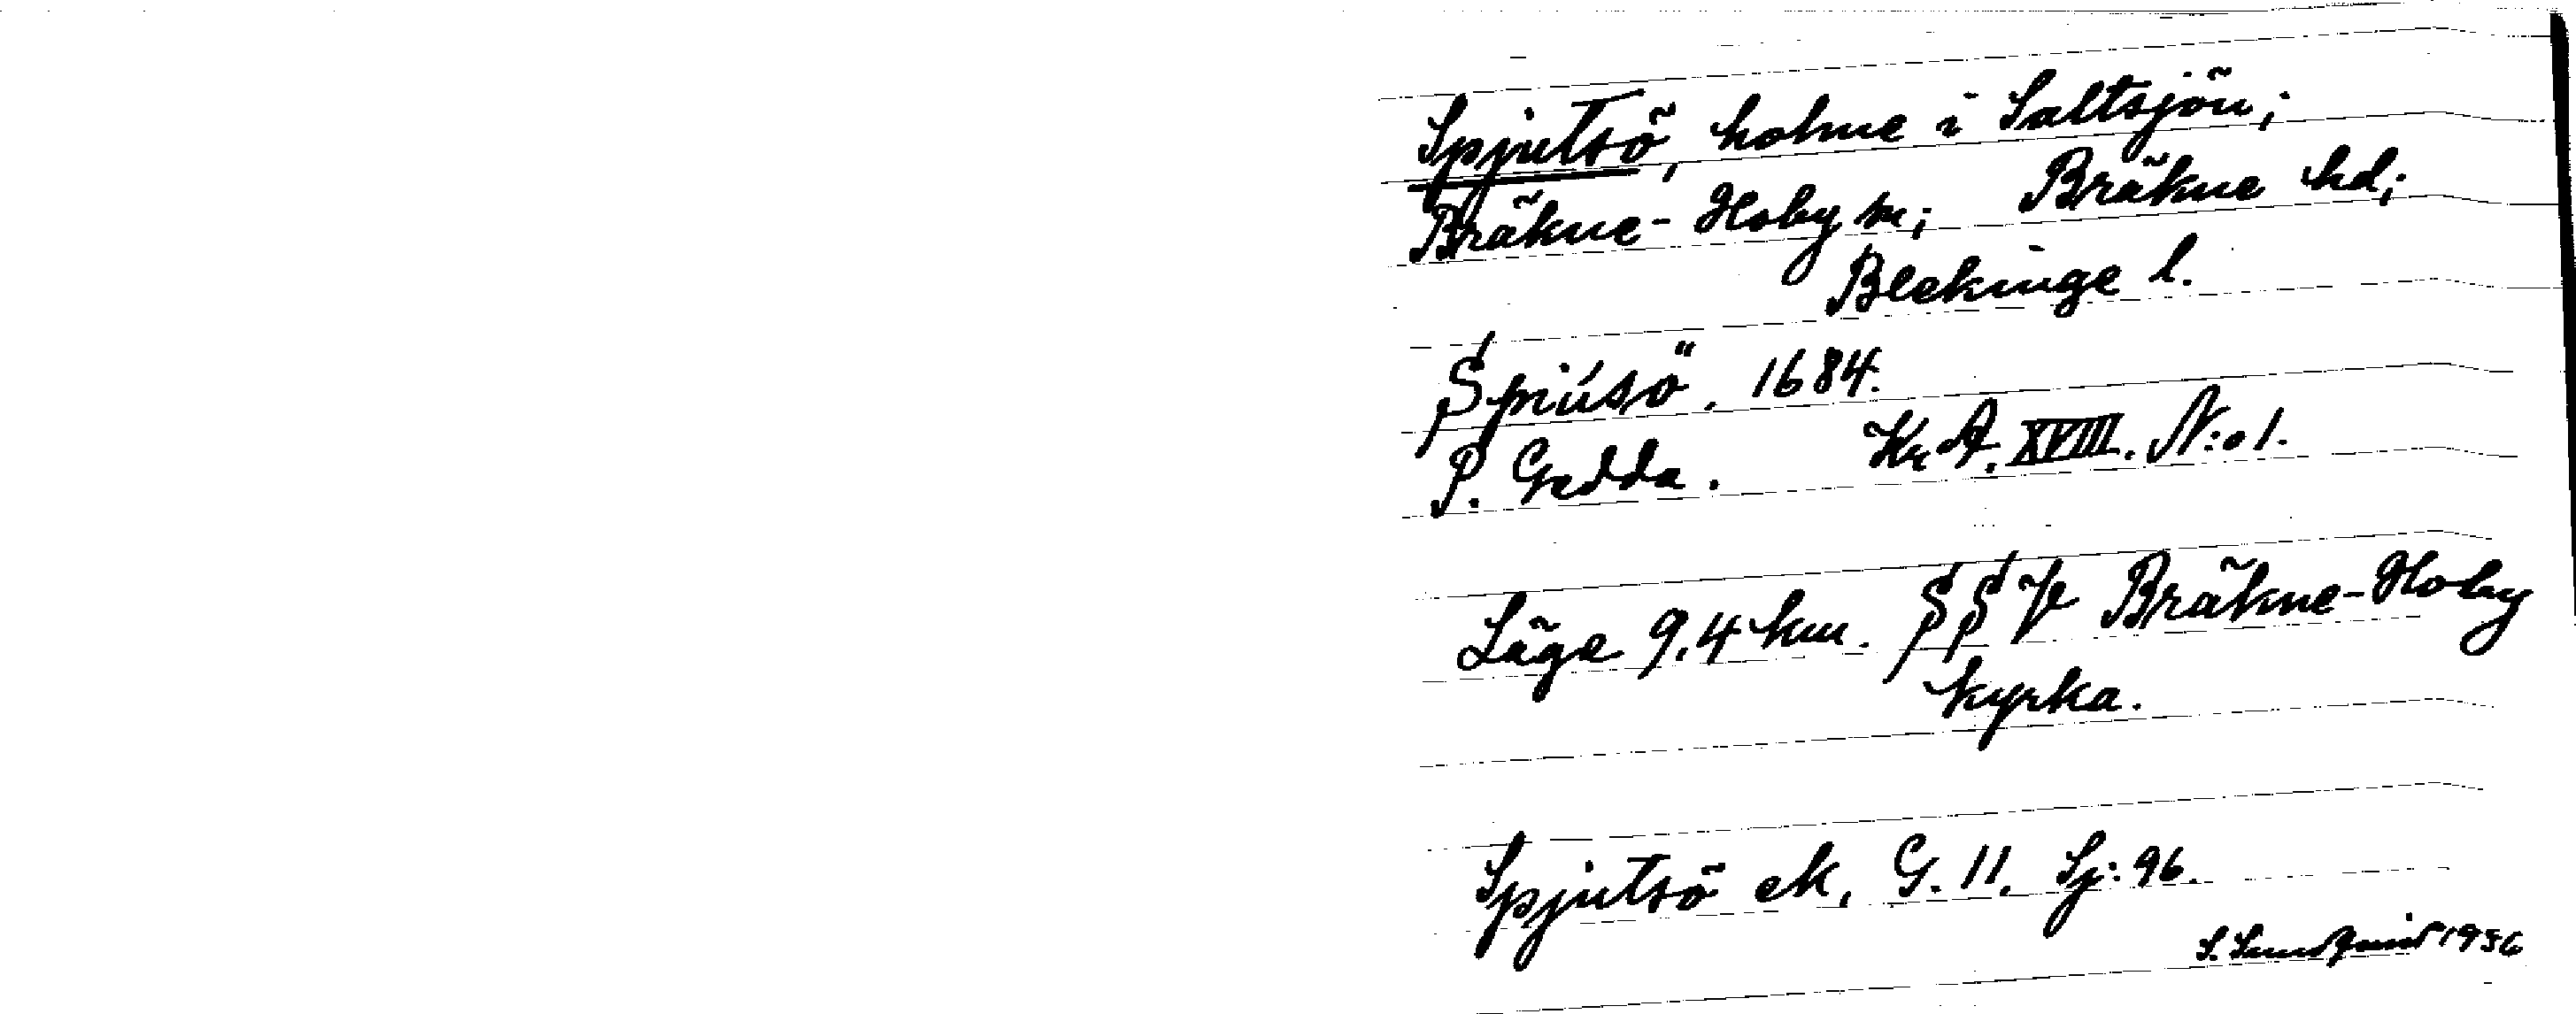 Spjutsö, holme i Saltsjön;
Bräkne-Hoby sn; Bräkne hd;
Blekinge l.
Spiúsö. 1684.
P. Gedda. Kr A. XVIII. N:o 1.
Läge 9,4 km. SSV Bräkne-Hoby
kyrka.
Spjutsö ek. G. 11. Sj: 96.
S. Sundquist 1936